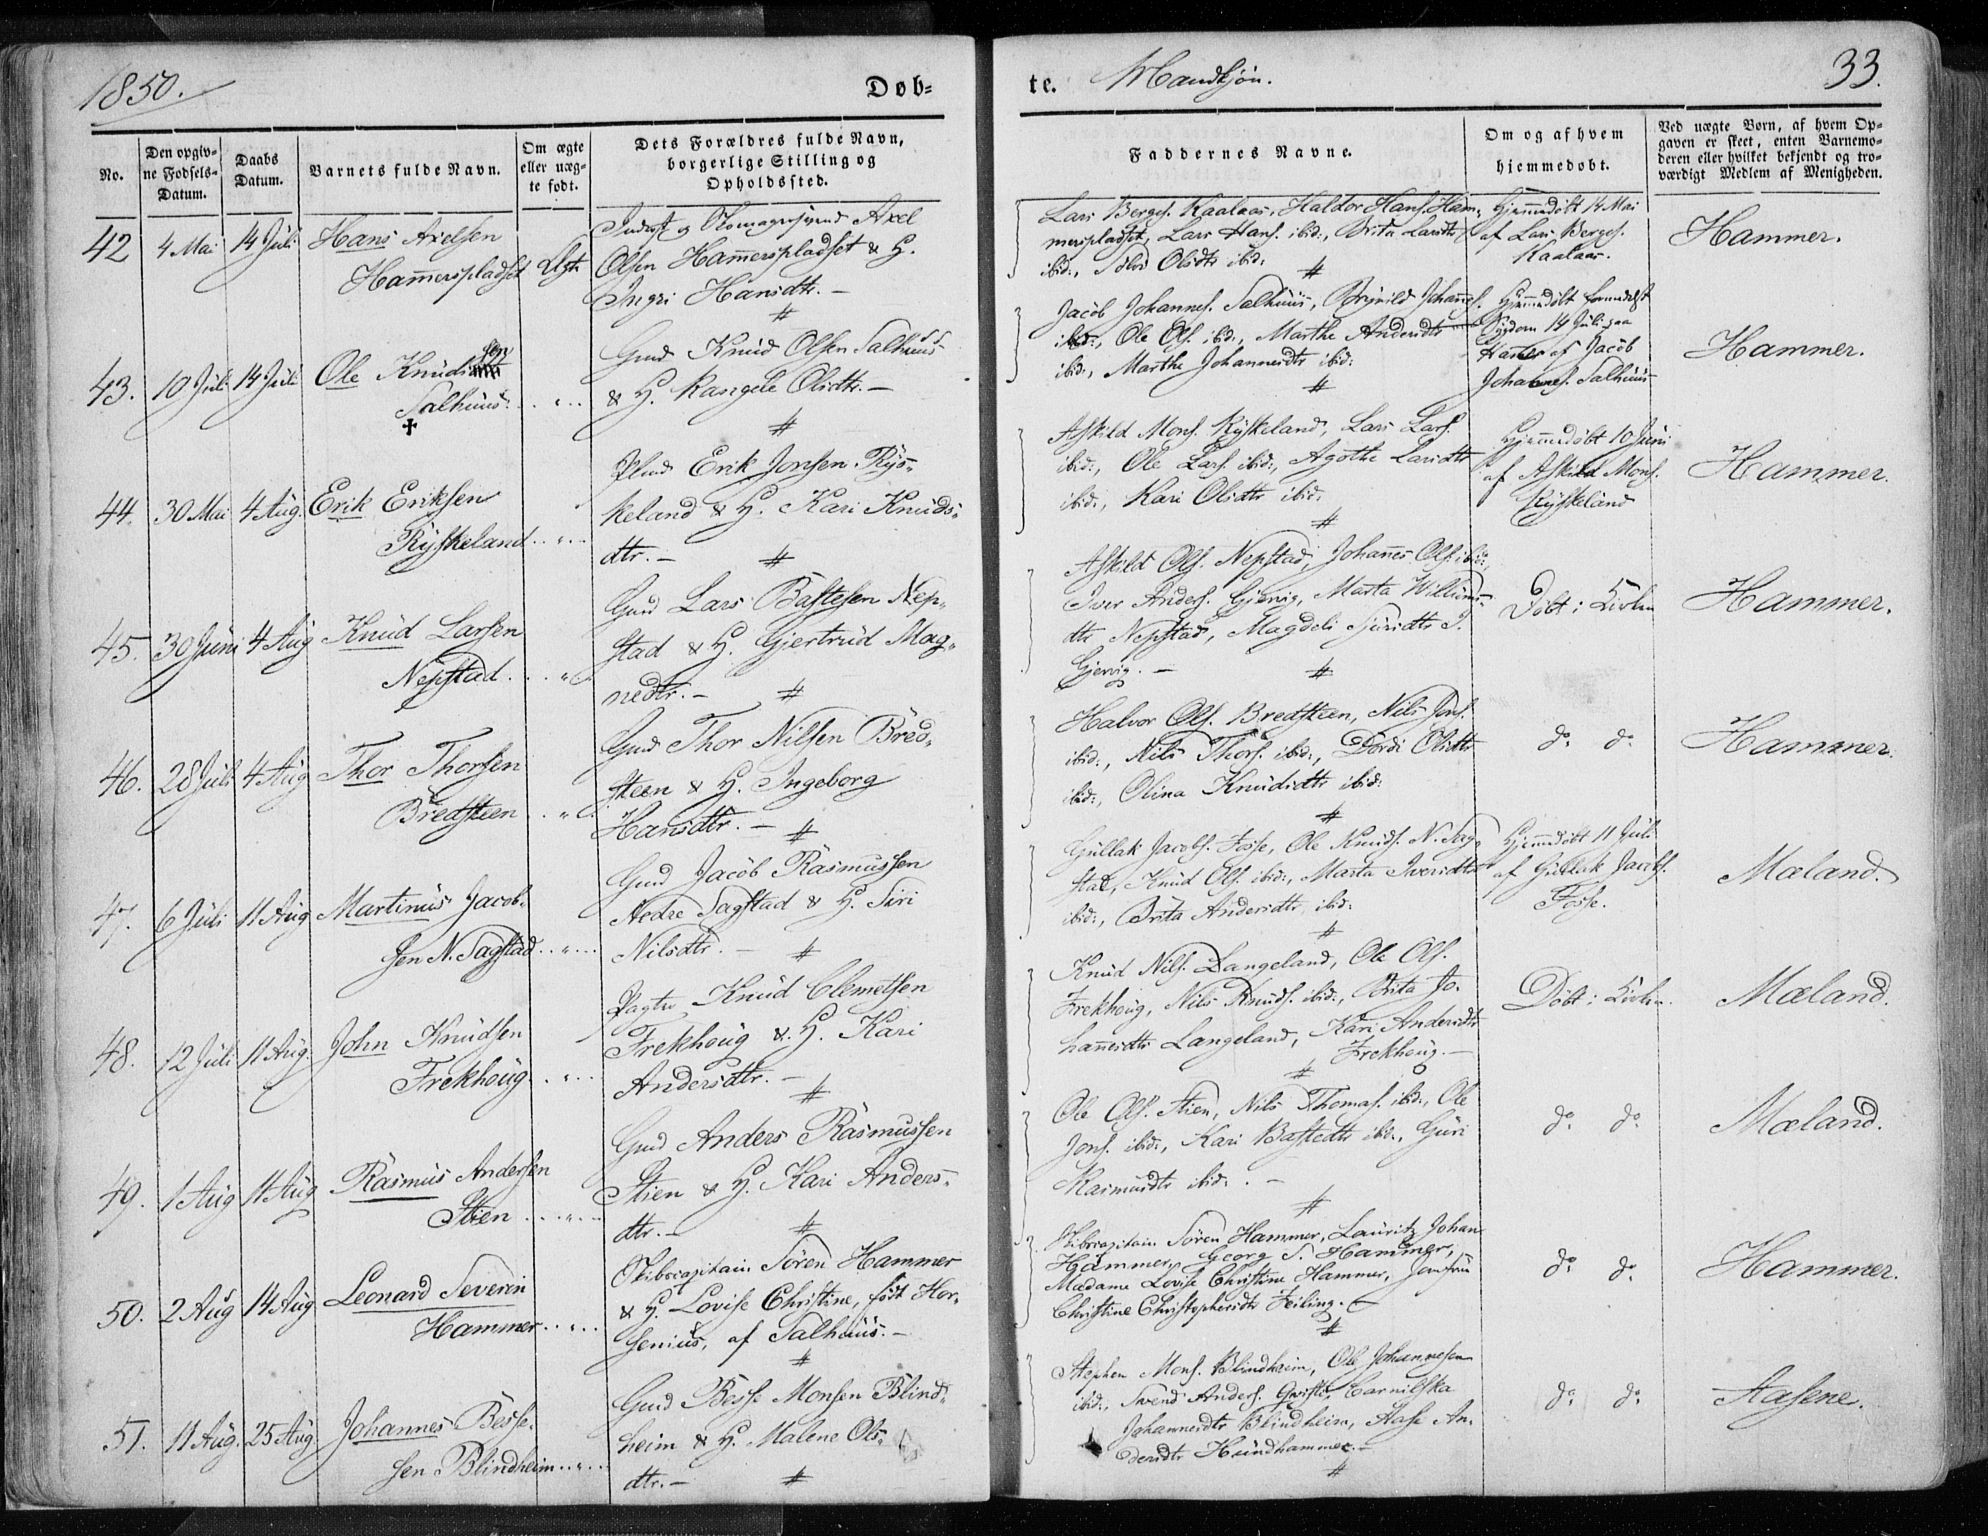 1850.
Døb=
te. Mandkjøn.
33.
No.
Den opgiv=
ne Fødsels=
Datum.
Daabs
Datum.
Barnets fulde Navn.
Om ægte
eller uæg=
te født.
Dets Forældres fulde Navn,
borgerlige Stilling og
Opholdssted.
Faddernes Navne.
Om og af hvem
hjemmedøbt.
Ved uægte Børn, af hvem Op=
gaven er skeet, enten Barnemo=
deren eller hvilket bekjendt og tro=
værdigt Medlem af Menigheden.
42 4 Mai 14 Juli Hans Axelsen
Hammerspladset Ægte
Inderst og Skomagersvend Axel
Olsen Hammerspladset & H.
Ingri Hansdtr. -
Lars Berges. Kaalaas, Haldor Hans. Ham-
merspladset, Lars Hans. ibid:, Brita Larsdtr
ibid:, Olsdtr ibid:
Hjemmedøbt 14 Mai
af Lars Berges.
Kaalaas.
Hammer.
43. 10 Juli 14 Juli Ole Knudssen
Salhuus. "
Gmd Knud Olsen Salhuus
& H. Rangele Olsdtr. -
Jacob Johannes. Salhuus, Brynild Johannes.
ibid:, Ole Ols. ibid:, Marthe Andersdtr
ibid:, Marthe Johannesdtr ibid:
Hjemmedøbt formedelst
Sygdom 14 Juli paa
Hammer af Jacob
Johannes. Salhuus
Hammer.
44. 30 Mai 4 Aug. Erik Eriksen
Ryskeland "
Erik Jonsen Rys-
keland & H. Kari Knuds-
dtr. -
Askild Mons. Ryskeland, Lars Lars.
ibid:, Ole Lars. ibid:, Agothe Larsdtr
ibid:, Kari Olsdtr ibid:
Hjemmedøbt 10 Juni
af Askild Mons.
Ryskeland
Hammer.
45. 30 Juni 4 Aug Knud Larsen
Nepstad. "
Gmd Lars Bastesen Nep-
stad & H. Gjertrud Mag-
nedtr. -
Askild Ols. Nepstad, Johannes Ols. ibid:,
Iver Anders. Gjervig, Marta Willums-
dtr Nepstad, Magdeli
Gjervig. -
Døbt i Kirken
Hammer.
46. 28 Juli 4 Aug Thor Thorsen
Bredsteen "
Gmd Thor Nilsen Bred-
steen & H. Ingeborg
Hansdtr. -
Halvor Ols. Bredsteen, Nils Jons.
ibid:, Nils Thors. ibid:, Dordi Olsdtr
ibid:, Olina Knudsdtr ibid:
do. do.
Hammer.
47. 6 Juli 11 Aug Martinus Jacob-
sen N. Sagstad "
Gmd Jacob Rasmussen
Nedre Sagstad & H. Siri
Nilsdtr. -
Gullak Jacobs. Fosse, Ole Knuds. N. Sag-
stad, Knud Ols. ibid:, Marta Iversdtr
ibid:, Brita Andersdtr. ibid:
Hjemmedøbt 11 Juli
af Gullak Jacobs.
Fosse.
Mæland.
48. 12 Juli 11 Aug. John Knudsen
Frekhoug. "
Pagter Knud Clemetsen
Frekhoug & H. Kari
Andersdtr. -
Knud Nils. Langeland, Ole Ols.
Frekhoug, Nils Knuds. ibid:, Brita Jo-
hannesdtr Langeland, Kari Andersdtr
Frekhoug. -
Døbt i Kirken.
Mæland.
49. 1 Aug 11 Aug Rasmus Andersen
Stien "
Gmd Anders Rasmussen
Stien & H. Kari Anders-
dtr. -
Ole Ols. Stien, Nils Thomas. ibid:, Ole
Jons. ibid:, Kari Bastedtr ibid:, Guri
Rasmusdtr ibid: . -
do. do.
Mæland.
50. 2 Aug 14 Aug Leonard Severin
Hammer "
Skibscapitain Søren Hammer
& H. Lovise Christine, født Hor-
senius, af Salhuus. -
Skibscapitain Søren Hammer, Lauritz Johan
Hammer, Georg S. Hammer,
Madame Lovise Christine Hammer, Jomfru
Christine Christophersdtr Feiling. -
do. do.
Hammer.
51. 11 Aug. 25 Aug. Johannes Besse-
sen Blindheim "
Gmd Besse Monsen Blind-
heim & H. Malene Ols-
dtr. -
Stephen Mons. Blindheim, Ole Johannesen
ibid:, Svend Anders. Qviste,
Johannesdtr Blindheim, Aase An-
dersdtr Hundhammer. -
do. do.
Aasene.